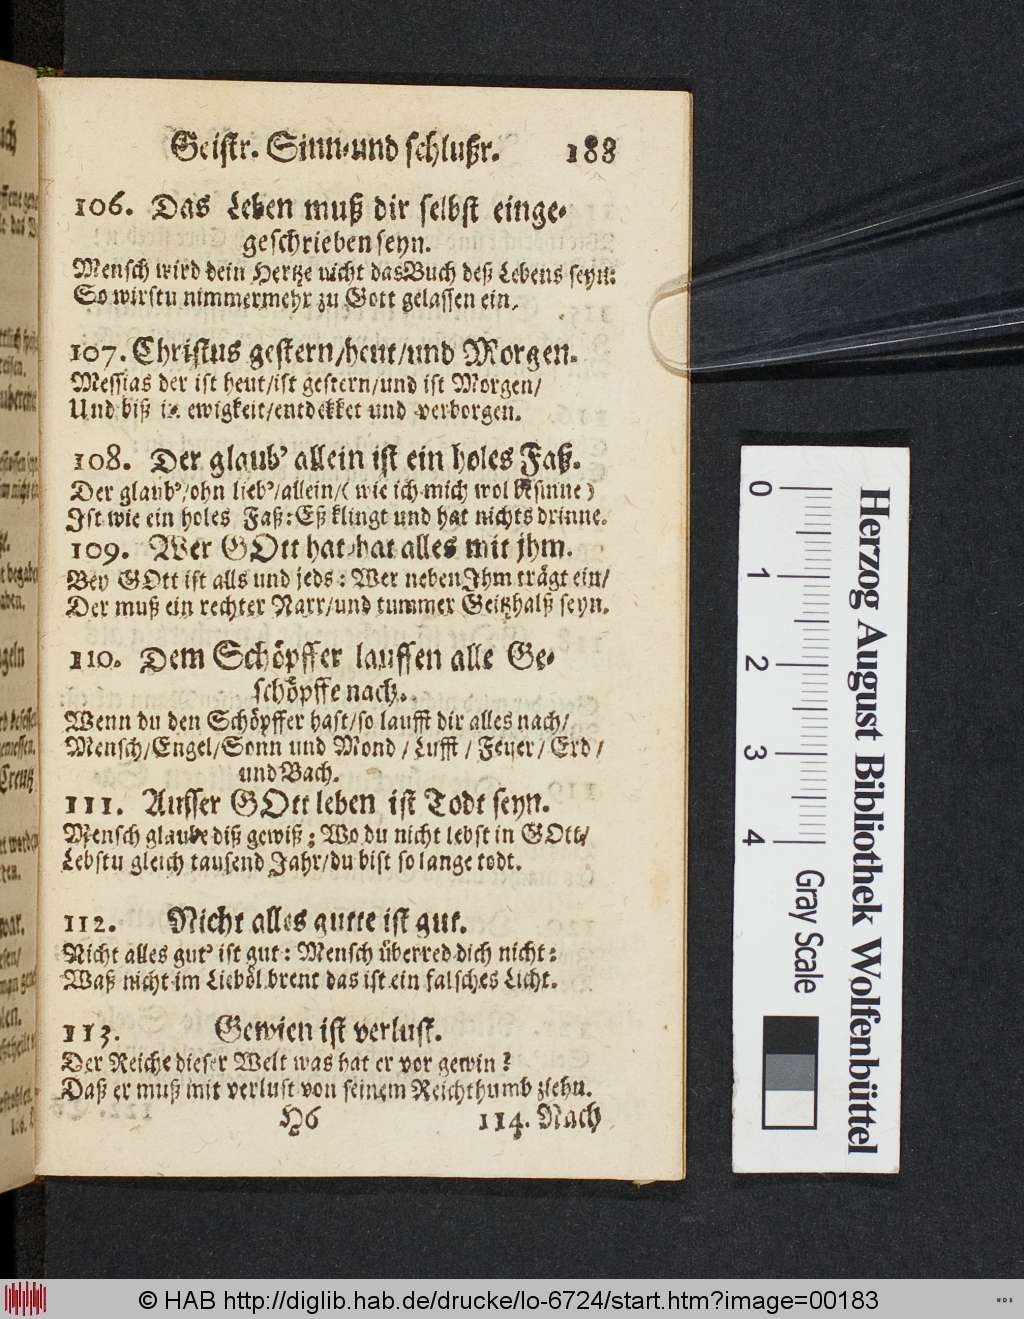 Geistr. Sinn-und schlußr. 183
106. Das Leben muß dir selbst einge-
geschrieben seyn.
Mensch wird dein Hertze nicht das Buch deß Lebens seyn:
So wirstu nimmermehr zu Gott gelassen ein.
107. Christus gestern/heut/und Morgen.
Messias der ist heut/ist gestern/und ist Morgen/
Und biß in ewigkeit/entdekket und verborgen.
108. Der glaub' allein ist ein holes Faß.
Der glaub'/ohn lieb'/allein/(wie ich mich wol besinne)
Ist wie ein holes Faß: Eß klingt und hat nichts drinne.
109. Wer GOtt hat hat alles mit jhm.
Bey GOtt ist alls und jeds: Wer neben Ihm trägt ein/
Der muß ein rechter Narr/und tummer Geitzhalß seyn.
110. Dem Schöpffer lauffen alle Ge-
schöpffe nach.
Wenn du den Schöpffer hast/so laufft dir alles nach/
Mensch/Engel/Sonn und Mond/Lufft/Feuer/Erd/
und Bach.
111. Ausser GOtt leben ist Todt seyn.
Mensch glaube diß gewiß: Wo du nicht lebst in GOtt/
Lebstu gleich tausend Jahr/du bist so lange todt.
112. Nicht alles gutte ist gut.
Nicht alles gut' ist gut: Mensch überred dich nicht:
Waß nicht im Lieböl brent das ist ein falsches Licht.
113. Gewien ist verlust.
Der Reiche dieser Welt was hat er vor gewin?
Daß er muß mit verlust von seinem Reichthumb ziehn.
H6 114. Nach
0 1 2 3 4 Gray Scale
Herzog August Bibliothek Wolfenbüttel
© HAB http://diglib.hab.de/drucke/lo-6724/start.htm?image=00183